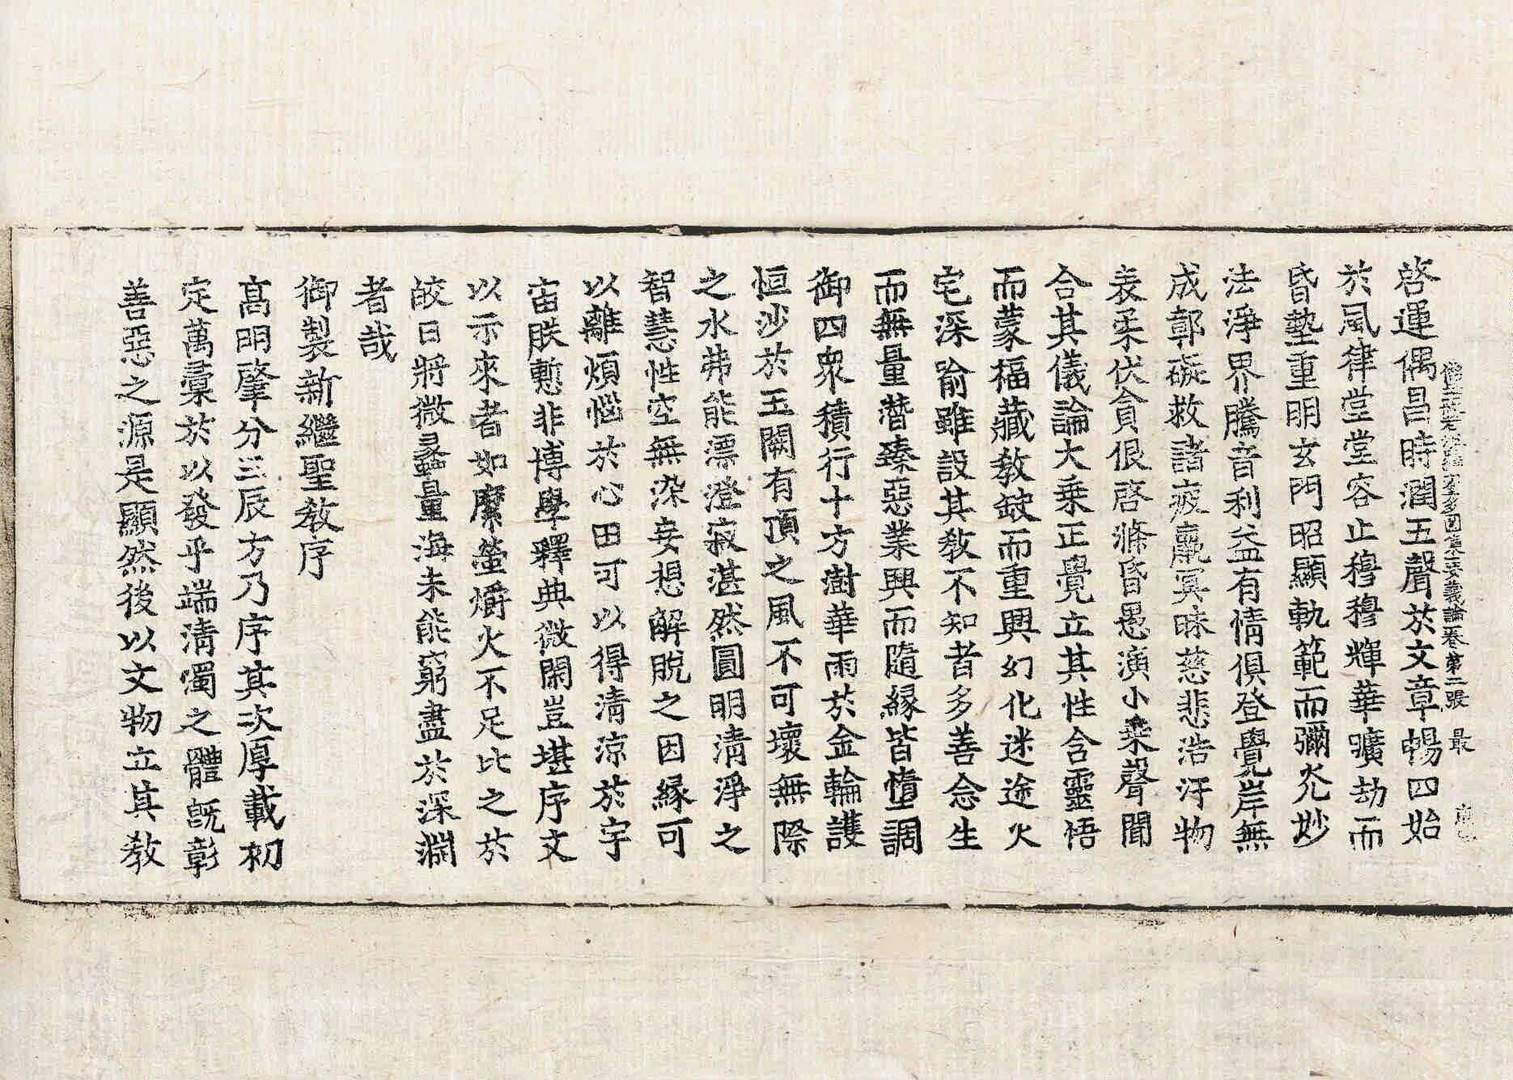 佛母般若波羅蜜多圓集要義論卷第二張 最
啓運偶昌時潤五聲於文章暢四始
於風律堂堂容止穆穆輝華曠劫而
昏墊重明玄門昭顯軌範而彌光妙
法淨界騰音利益有情俱登覺岸無
成鄣礙救諸疲羸冥昧慈悲浩汗物
表柔伏貪佷啓滌昏愚演小乘聲聞
合其儀論大乘正覺立其性含靈悟
而蒙福藏教缺而重興幻化迷途火
宅深喻雖設其教不知者多善念生
而無量潛臻惡業興而隨緣皆墮調
御四衆積行十方澍華雨於金輪護
恒沙於玉闕有頂之風不可壞無際
之水弗能漂澄寂湛然圓明清淨之
智慧性空無染妄想解脫之因緣可
以離煩惱於心田可以得清涼於宇
宙朕慙非博學釋典微閑豈堪序文
以示來者如縻螢爝火不足比之於
皎日將微蠡量海未能窮盡於深淵
者哉
御製新繼聖教序
高明肇分三辰方乃序其次厚載初
定萬彙於以發乎端清濁之體旣彰
善惡之源是顯然後以文物立其教